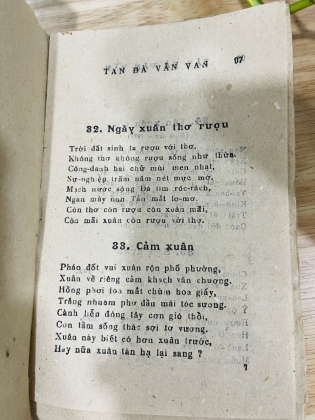 TẢN ĐÀ VẬN VĂN 97
32. Ngày xuân thơ rượu
Trời đất sinh ta rượu với thơ,
Không thơ không rượu sống như thừa.
Công-danh hai chữ mùi men nhạt,
Sự-nghiệp trăm năm nét mực mờ.
Mạch nước sông Đà tim róc-rách,
Ngàn mây non Tản mắt lơ-mơ.
Còn thơ còn rượu còn xuân mãi,
Còn mãi xuân còn rượu với thơ.
33. Cảm xuân
Pháo đốt vui xuân rộn phố phường,
Xuân về riêng cảm khách văn chương.
Hồng phơi tóa mắt chùm hoa giấy,
Trắng nhuộm phơ đầu mái tóc sương.
Cành liễu đông tây cơn gió thổi,
Con tằm sống thác sợi tơ vương.
Xuân này biết có hơn xuân trước,
Hay nữa xuân tàn hạ lại sang ?
7